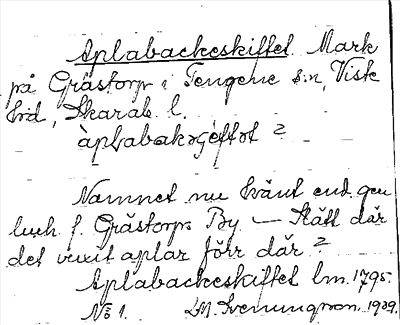 Aplabackeskiftet. Mark
på Grästorp i Tengene s:n, Viste
hrd, Skarab. l.
àplabakəʃèftət ?
Namnet nu känt end. gen
luck f. Grästorps By — Kätt där
det vuxit aplar förr där ?
Aplabackeskiftet lm. 1795.
No 1. LM. Svenungsson. 1929.